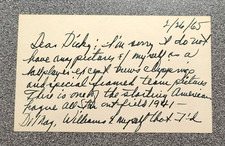 2/26/65
Dear Dick; I'm sorry I do not
have any pictures of myself as a
ballplayer except news clippings
and special framed team pictures
There is one of the starting American
League All Star outfield 1941 -
DiMag, Williams & myself that I'd